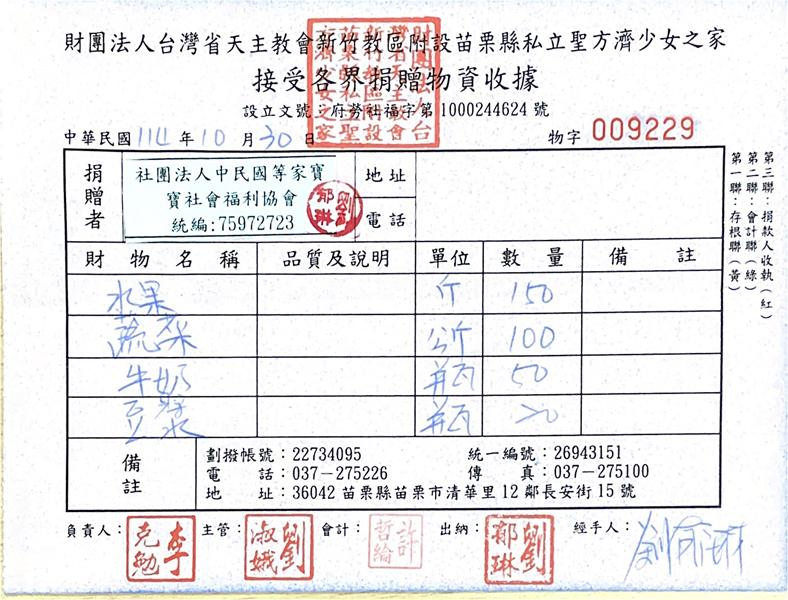 財團法人台灣省天主教會新竹教區附設苗栗縣私立聖方濟少女之家
接受各界捐贈物資收據
設立文號：府勞社福字第 1000244624 號
中華民國 114 年 10 月 30 日
物字 009229
捐贈者
社團法人中民國等家寶
寶社會福利協會
統編:75972723
地址
電話
財物名稱 品質及說明 單位 數量 備註
水果 斤 150
蔬菜 公斤 100
牛奶 瓶 50
豆漿 瓶 20
備註
劃撥帳號：22734095 統一編號：26943151
電話：037－275226 傳真：037－275100
地址：36042 苗栗縣苗栗市清華里 12 鄰長安街 15 號
負責人： 李克勉 主管： 劉淑娥 會計： 許哲綸 出納： 劉郁琳 經手人：
第三聯：捐款人收執（紅）
第二聯：會計聯（綠）
第一聯：存根聯（黃）